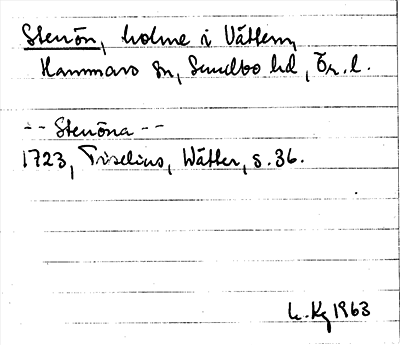 Stenön, holme i Vättern,
Hammars sn, Sundbo hd, Ör. l.
-- Stenöna --
1723, Tiselius, Wätter, s. 36.
1963